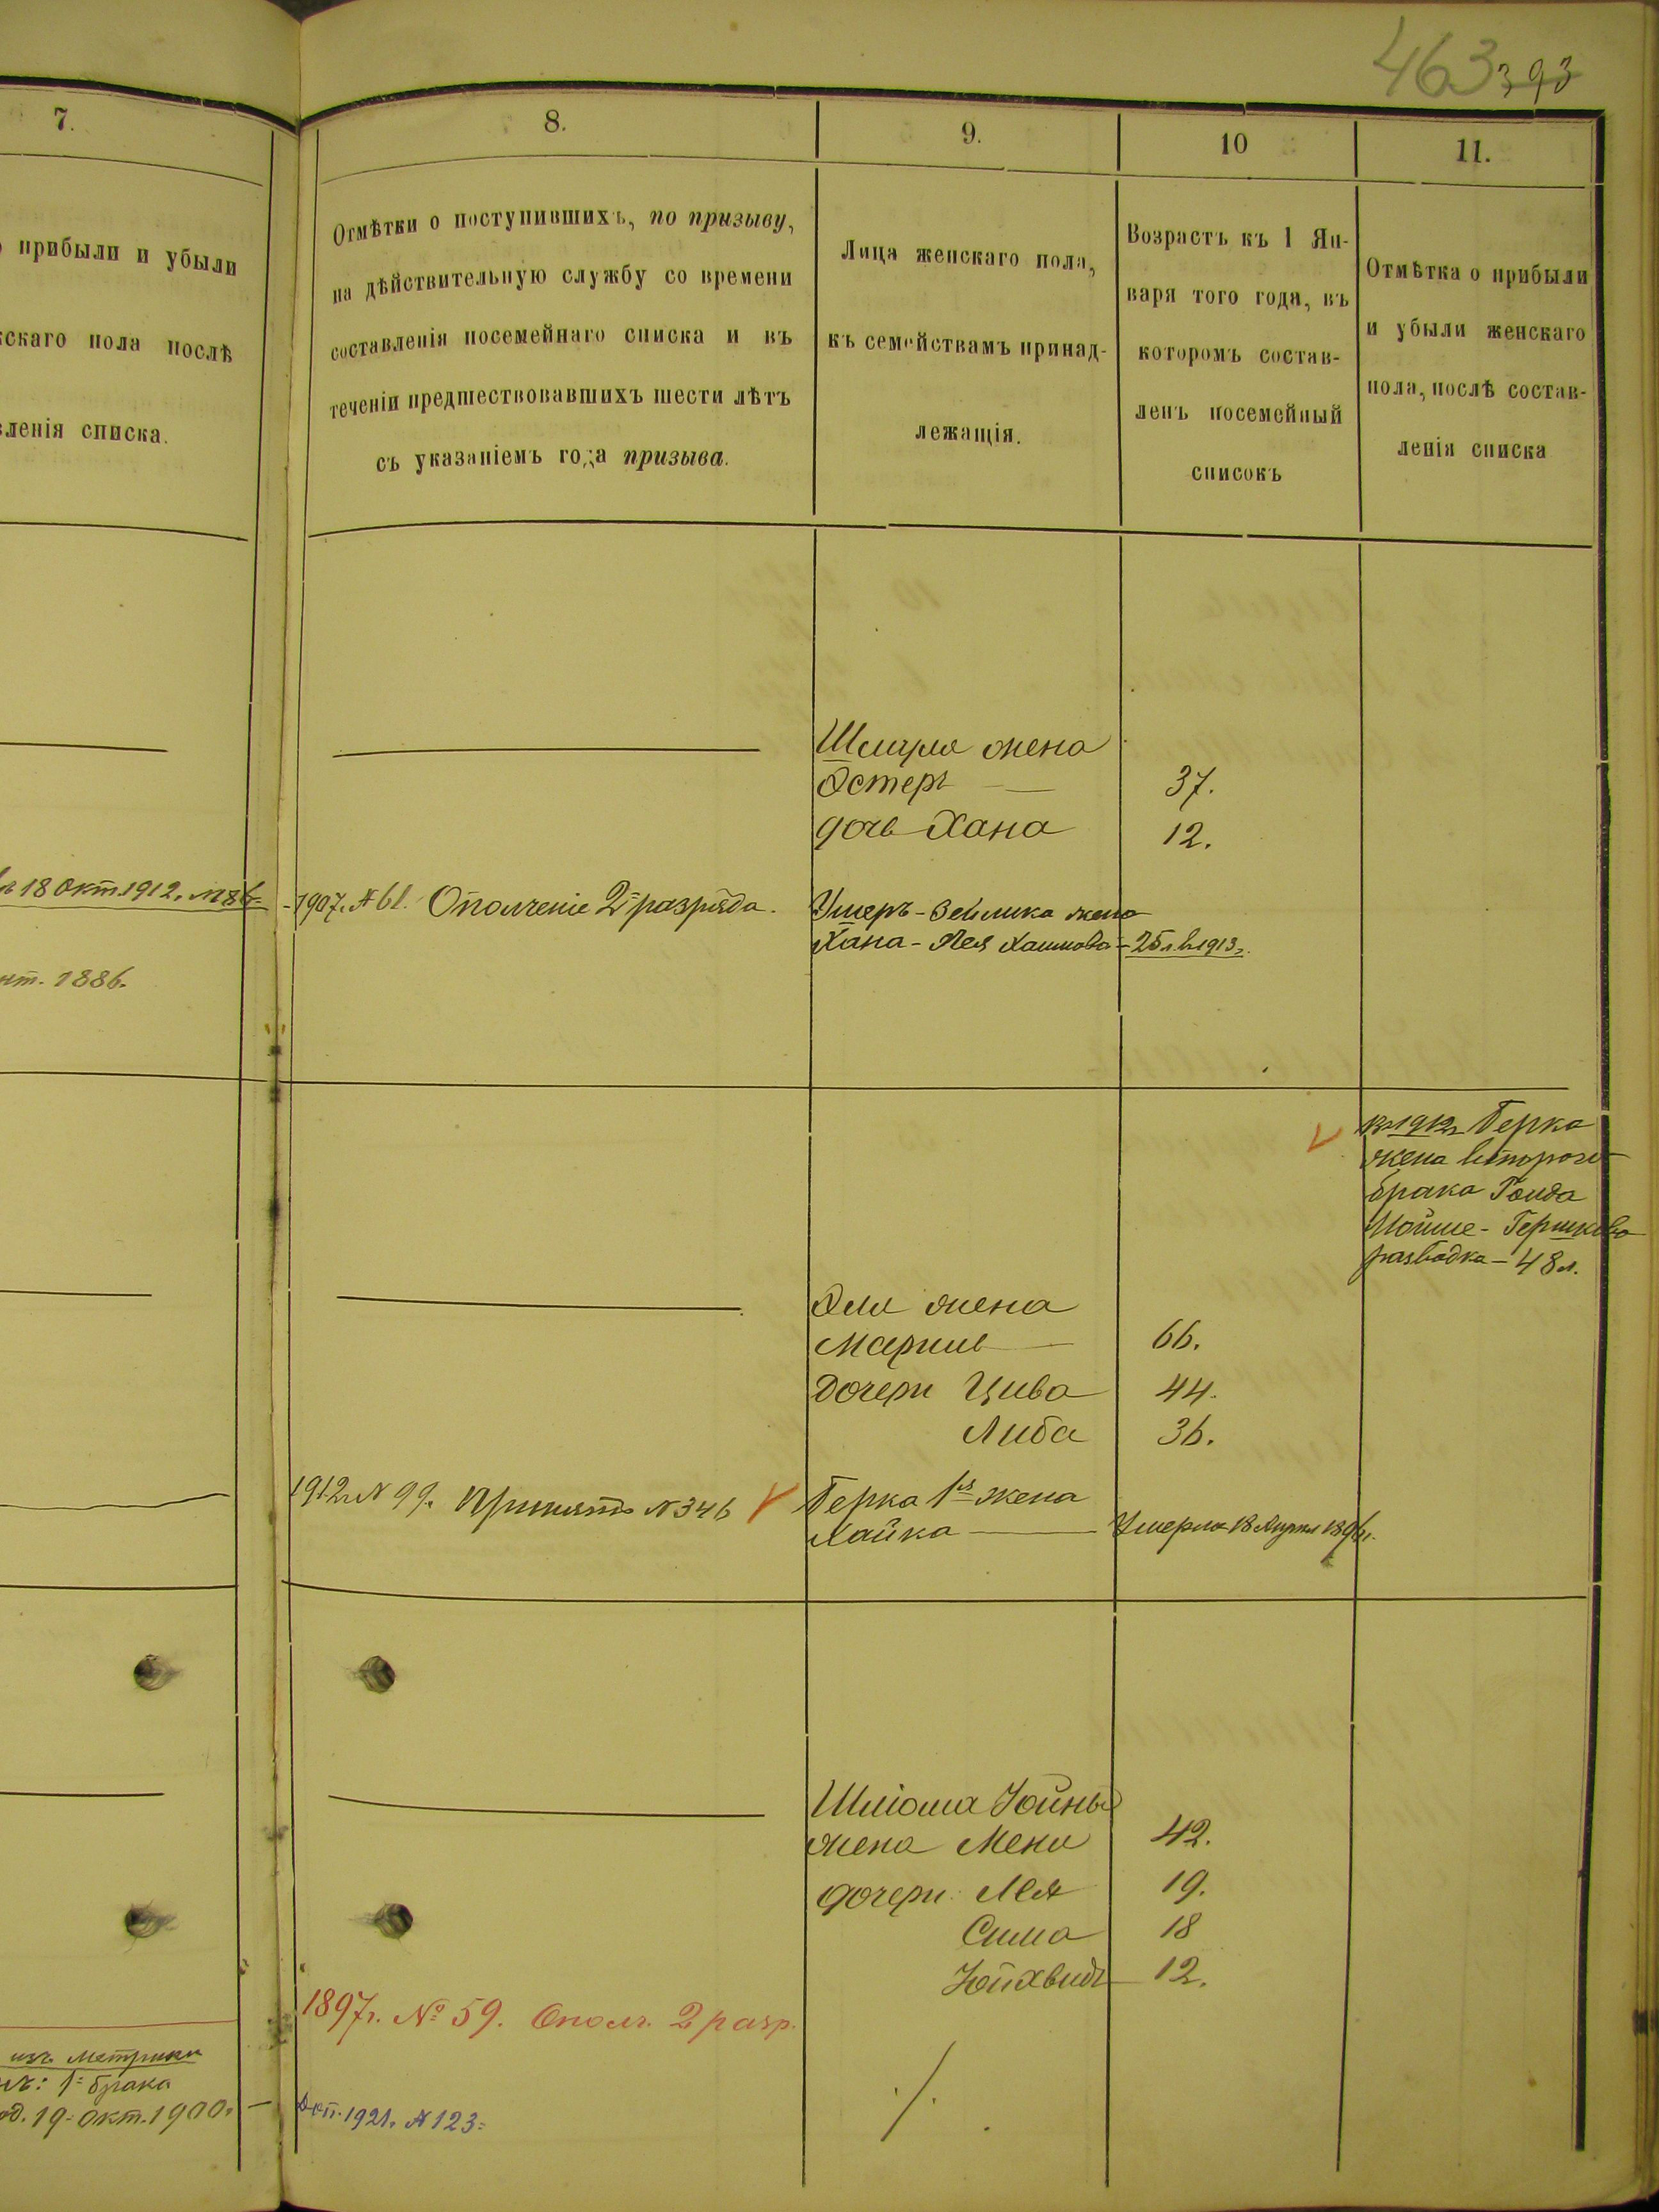 463 393
7.
прибыли и убыли
скаго пола послѣ
вленія списка.
18 Окт. 1912.
1886.
изъ метрики
1= брака
19= Окт. 1900.
8.
Отмѣтки о поступившихъ, по призыву,
на дѣйствительную службу со времени
составленія посемейнаго списка и въ
теченіи предшествовавшихъ шести лѣтъ
съ указаніемъ года призыва.
9.
Лица женскаго пола,
къ семействамъ принад-
лежащія.
10
Возрастъ къ 1 Ян-
варя того года, въ
которомъ состав-
ленъ посемейный
списокъ
11.
Отмѣтка о прибыли
и убыли женскаго
пола, послѣ состав-
ленія списка
Шмуля жена
Эстеръ 37.
дочь Хана 12.
1907. №61. Ополченіе 2= разряда. Умеръ - Зелика жена
Хана - Лея Хаимова - 25 л. въ 1913 г.
въ 1912 г. Берка
жена второго
брака Гонда
Мойше - Гершкова
разводка - 48 л.
Эли жена
66.
Дочери Цива 44.
Либа 36.
1912 г. №99. Принятъ №346 Берка 1я жена
Хайка Умерла 18 Апреля 189
Шліома Іойны
жена Мени 42.
дочери Лея 19.
Сима 18
12.
1897 г. № 59. Ополч. 2 разр.
Доп. 1921. №123=